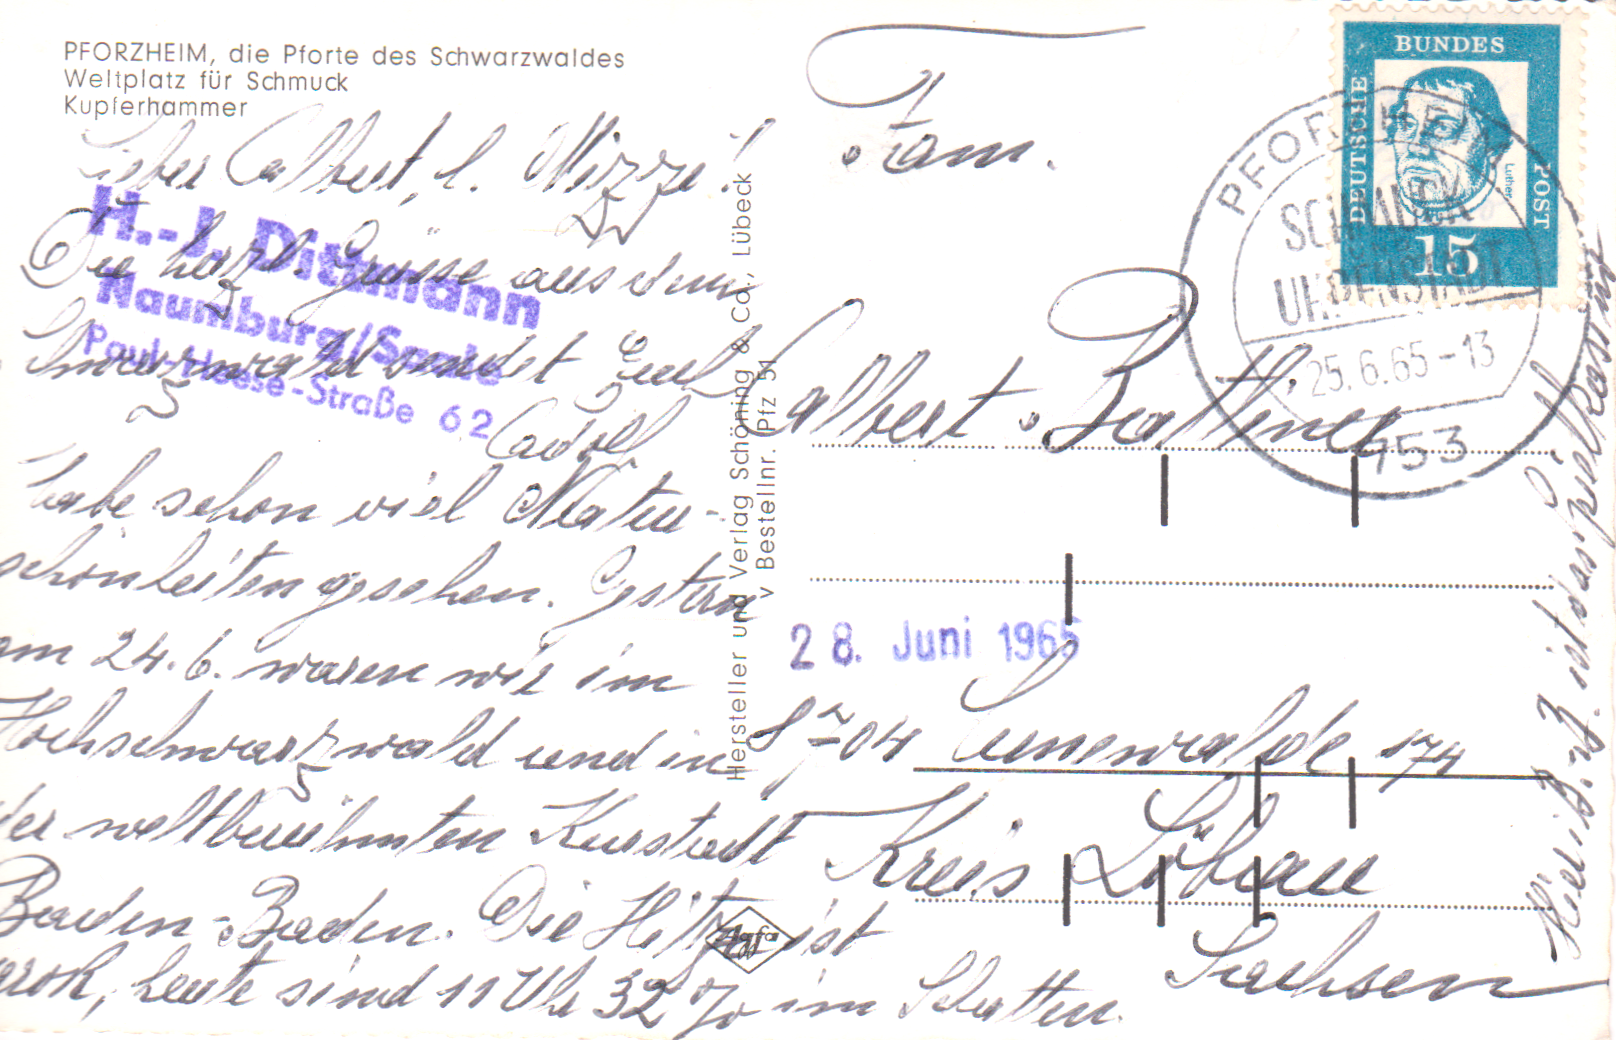 PFORZHEIM, die Pforte des Schwarzwaldes
Weltplatz für Schmuck
Kupferhammer
Lieber Albert, l. Mizzi!
Die herzl. Grüsse aus dem
Schwarzwald sendet Euch
Adolf
Habe schon viel Natur-
schönheiten gesehen. Gestern
am 24.6. waren wir im
Hochschwarzwald und in
der weltberühmten Kurstadt
Baden-Baden. Die Hitze ist
arok, heute sind 11 Uhr 32 % im Schatten.
H.-J. Dittmann
Naumburg/Saale
Paul-Heese-Straße 62
Hersteller und Verlag Schöning & Co., Lübeck
Bestellnr. Pfz 51
Agfa
Fam.
Albert
28. Juni 1965
8704 174
Kreis Löbau
Sachsen
Hier ist das
DEUTSCHE BUNDESPOST
Luther
15
PFORZHEIM
SCHMUCK
UHRENSTADT
25.6.65-13
753